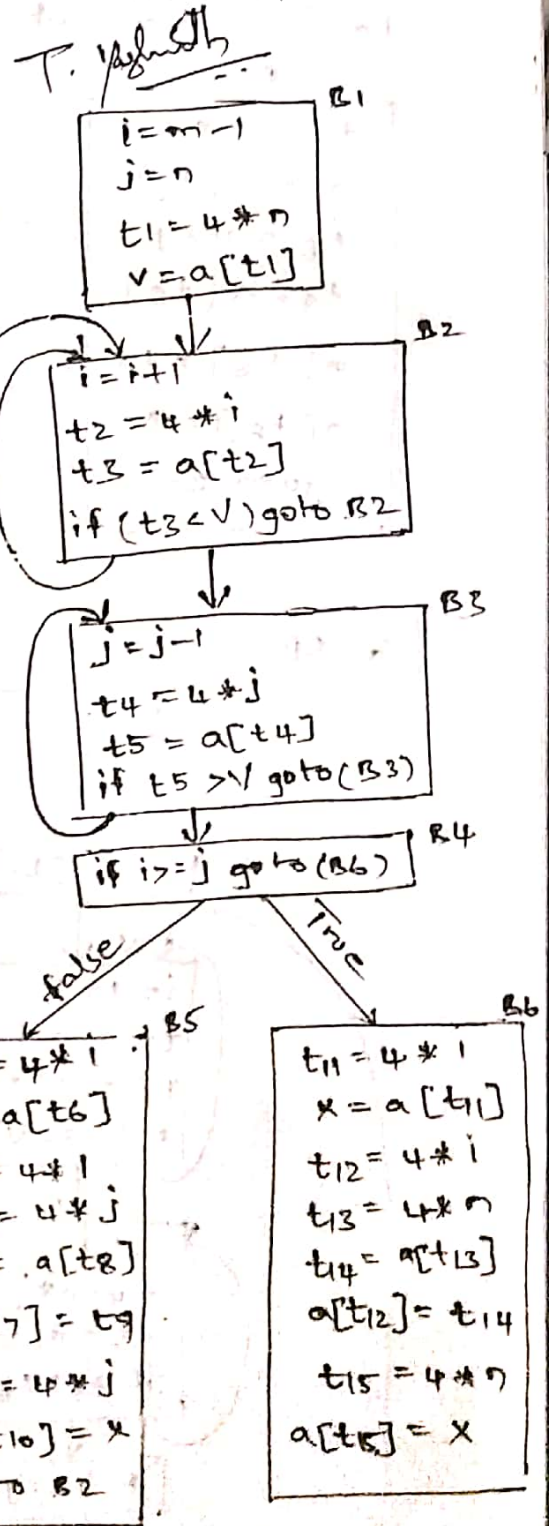 T.
B1
i=m-1
j=n
t1=4*n
v=a[t1]
B2
i=i+1
t2=4*i
t3=a[t2]
if (t3<V) goto B2
B3
j=j-1
t4=4*j
t5=a[t4]
if t5>V goto(B3)
B4
if i>=j goto(B6)
false
True
B5
=4*i
a[t6]
4*i
=4*j
=a[t8]
7]=t9
=4*j
10]=x
To B2
B6
t11=4*i
x=a[t11]
t12=4*i
t13=4*n
t14=a[t13]
a[t12]=t14
t15=4*n
a[t15]=x